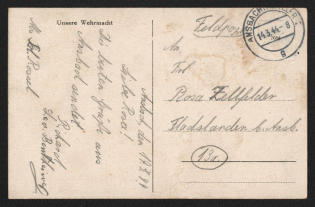 Unsere Wehrmacht
Ansbach, den 14.3.44
Liebe Rosa!
Die besten Grüße aus
Ansbach sendet
Richard
Feldpost
ANSBACH
14.3.44.-8
a
An
Frl
Rosa Zellfelder
Flachslanden b. Ansb.
13a